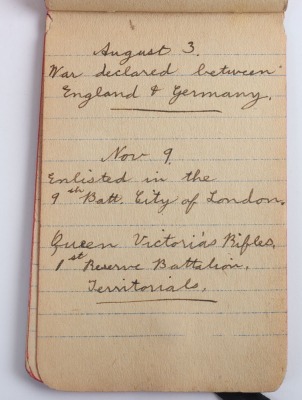 August 3.
War declared between
England & Germany.
Nov 9.
Enlisted in the
9th Batt. City of London.
Queen Victoria's Rifles.
1st Reserve Battalion.
Territorials.